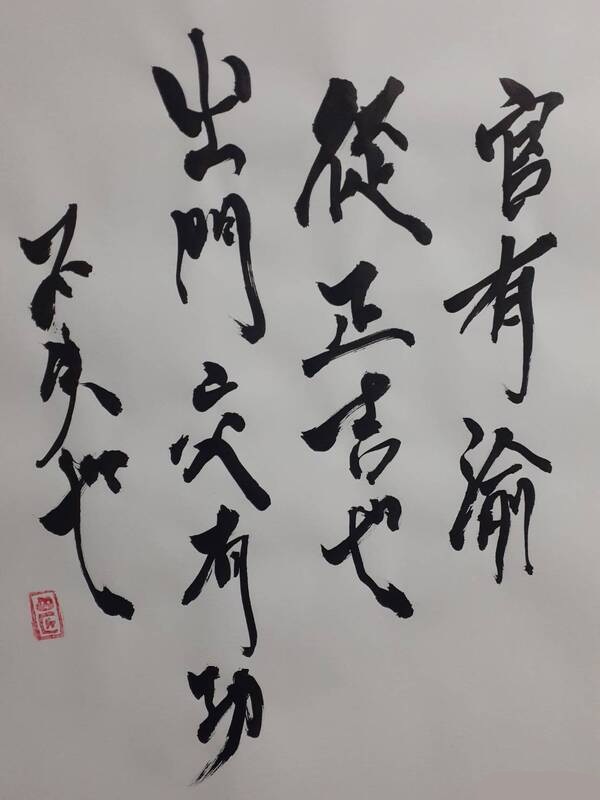 官有渝
從正吉也
出門交有功
不失也